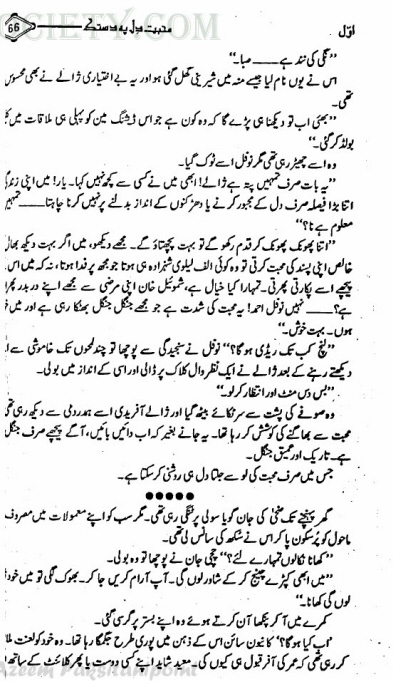 CIETY.COM
66 محبت دل پہ دستک اوّل
"نگی کی نند ہے ـــــ صبا۔"
اس نے یوں نام لیا جیسے منہ میں شیرینی گھل گئی ہو اور یہ بے اختیاری ژالے نے بھی محسوس
تھی۔
"بھئی اب تو دیکھنا ہی پڑے گا کہ وہ کون ہے جو اس ڈیشنگ مین کو پہلی ہی ملاقات میں
بولڈ کر گئی۔"
وہ اسے چھیڑ رہی تھی مگر نوفل اسے ٹوک گیا۔
"یہ بات صرف تمہیں پتہ ہے ژالے! ابھی میں نے کسی سے کچھ نہیں کہا۔ یار! میں اپنی
اتنا بڑا فیصلہ صرف دل کے مجبور کرنے یا دھڑکنوں کے انداز بدلنے پر نہیں کرنا چاہتا ـــــ تمہیں
معلوم ہے نا؟"
"اتنا پھونک پھونک کر قدم رکھو گے تو بہت پچھتاؤ گے۔ مجھے دیکھو، میں اگر بہت دیکھ
خالص اپنی پسند کی محبت کرتی تو وہ کوئی الف لیلوی شہزادہ ہی ہوتا جو مجھ پر فدا ہوتا، نہ کہ میں اس
پیچھے اسے پکارتی پھرتی۔ تمہارا کیا خیال ہے، شموئیل خان اپنی مرضی سے مجھے اپنے در بدر
ہے؟ ـــــ نہیں نوفل احمد! یہ محبت کی شدت ہے جو مجھے جنگل جنگل بھٹکا رہی ہے اور میں
ہوں۔ بہت خوش۔"
"لنچ کب تک ریڈی ہو گا؟" نوفل نے سنجیدگی سے پوچھا تو چند لمحوں تک خاموشی سے
دیکھتے رہنے کے بعد ژالے نے ایک نظر وال کلاک پر ڈالی اور اسی کے انداز میں بولی۔
"بس دس منٹ اور انتظار کر لو۔"
وہ صوفے کی پشت سے سر ٹکائے بیٹھ گیا اور ژالے آفریدی اسے ہمدردی سے دیکھ رہی تھی
محبت سے بھاگنے کی کوشش کر رہا تھا۔ یہ جانے بغیر کہ اب دائیں بائیں، آگے پیچھے صرف جنگل
ہے۔ تاریک اور عمیق جنگل۔
جس میں صرف محبت کی لو سے جلتا دل ہی روشنی کر سکتا ہے۔
●●●●●
گھر پہنچنے تک ضحیٰ کی جان گویا سولی پر ٹنگی رہی تھی۔ مگر سب کو اپنے معمولات میں مصروف
ماحول کو پرسکون پا کر اس نے سکھ کی سانس لی تھی۔
"کھانا نکالوں تمہارے لئے؟" چچی جان نے پوچھا تو وہ بولی۔
"میں ابھی کپڑے چینج کر کے شاور لوں گی۔ آپ آرام کریں جا کر۔ بھوک لگی تو میں خود
لوں گی کھانا۔"
کمرے میں آ کر پنکھا آن کرتے ہوئے وہ اپنے بستر پر گر سی گئی۔
'اب کیا ہو گا؟' کا نیون سائن اس کے ذہن میں پوری طرح جگمگا رہا تھا۔ وہ خود کو لعنت
کر رہی تھی کہ عمر کی آفر قبول ہی کیوں کی۔ معید شاید اپنے کسی دوست یا پھر کلائنٹ کے ساتھ
Azeem Pakistanipoint